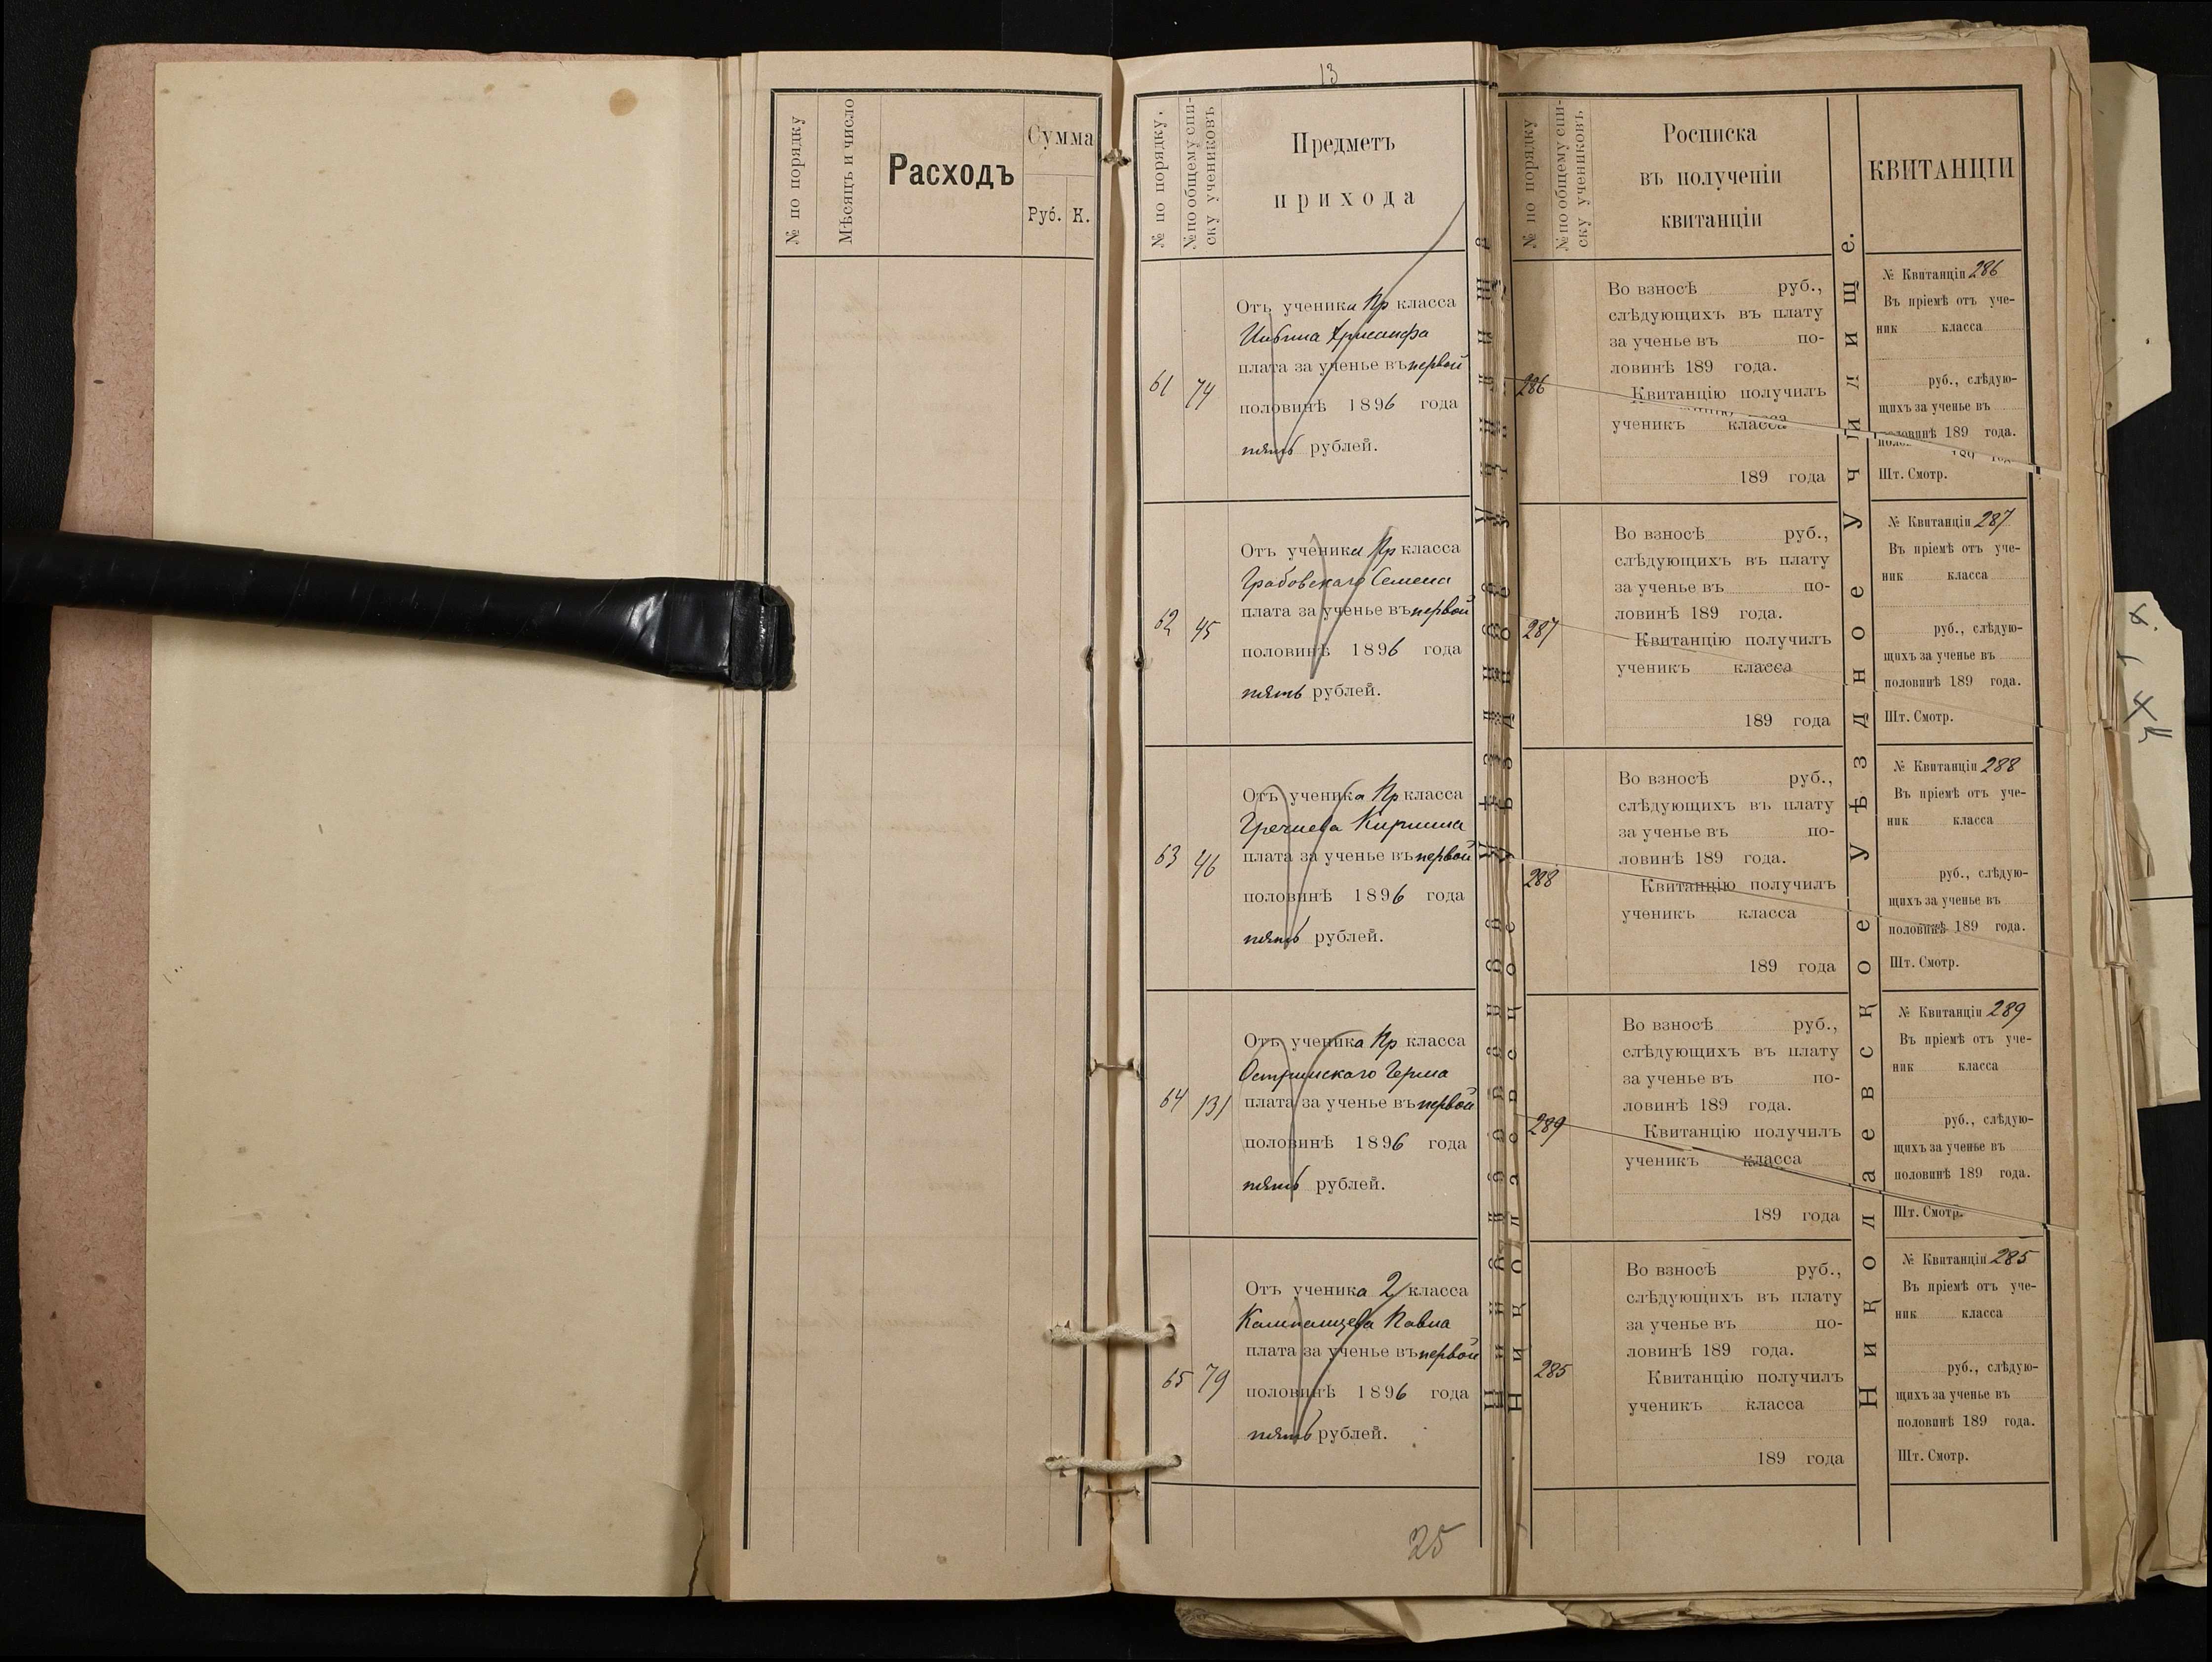 № по порядку
Мѣсяцъ и число
Расходъ
Сумма
Руб. К.
13
№ по порядку.
№ по общему спи-
ску учениковъ
Предметъ
прихода
61 74
Отъ ученика Пр класса
Хрисанфа
плата за ученье въ первой
половинѣ 1896 года
пять рублей.
62 45
Отъ ученика Пр класса
Грабовскаго Семена
плата за ученье въ первой
половинѣ 1896 года
пять рублей.
63 46
Отъ ученика Пр класса
плата за ученье въ первой
половинѣ 1896 года
пять рублей.
64 131
Отъ ученика Пр класса
плата за ученье въ первой
половинѣ 1896 года
пять рублей.
65 79
Отъ ученика 2 класса
Павла
плата за ученье въ первой
половинѣ 1896 года
пять рублей.
25
№ по порядку
№ по общему спи-
ску учениковъ
Росписка
въ полученіи
квитанціи
286
Во взносѣ руб.,
слѣдующихъ въ плату
за ученье въ по-
ловинѣ 189 года.
Квитанцію получилъ
ученикъ класса
189 года
287
Во взносѣ руб.,
слѣдующихъ въ плату
за ученье въ по-
ловинѣ 189 года.
Квитанцію получилъ
ученикъ класса
189 года
288
Во взносѣ руб.,
слѣдующихъ въ плату
за ученье въ по-
ловинѣ 189 года.
Квитанцію получилъ
ученикъ класса
189 года
289
Во взносѣ руб.,
слѣдующихъ въ плату
за ученье въ по-
ловинѣ 189 года.
Квитанцію получилъ
ученикъ класса
189 года
285
Во взносѣ руб.,
слѣдующихъ въ плату
за ученье въ по-
ловинѣ 189 года.
Квитанцію получилъ
ученикъ класса
189 года
Николаевское Уѣздное Училище.
КВИТАНЦІИ
№ Квитанціи 286
Въ пріемѣ отъ уче-
ник класса
руб., слѣдую-
щихъ за ученье въ
половинѣ 189 года.
Шт. Смотр.
№ Квитанціи 287
Въ пріемѣ отъ уче-
ник класса
руб., слѣдую-
щихъ за ученье въ
половинѣ 189 года.
Шт. Смотр.
№ Квитанціи 288
Въ пріемѣ отъ уче-
ник класса
руб., слѣдую-
щихъ за ученье въ
половинѣ 189 года.
Шт. Смотр.
№ Квитанціи 289
Въ пріемѣ отъ уче-
ник класса
руб., слѣдую-
щихъ за ученье въ
половинѣ 189 года.
Шт. Смотр.
№ Квитанціи 285
Въ пріемѣ отъ уче-
ник класса
руб., слѣдую-
щихъ за ученье въ
половинѣ 189 года.
Шт. Смотр.